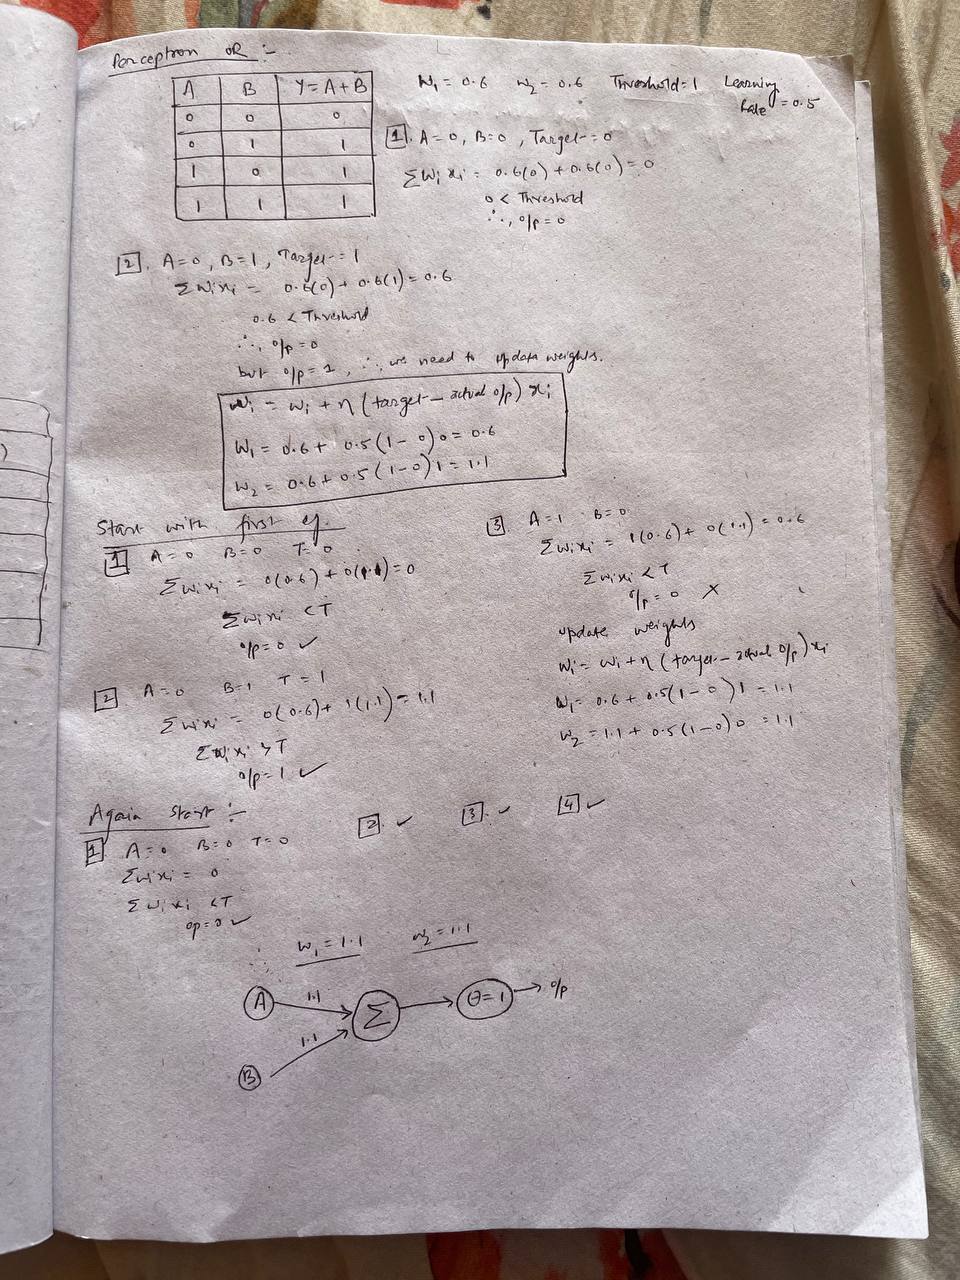 Perceptron OR :-
A B Y=A+B
0 0 0
0 1 1
1 0 1
1 1 1
W₁ = 0.6 W₂ = 0.6 Threshold=1 Learning Rate = 0.5
1. A=0, B=0, Target=0
Σwᵢxᵢ = 0.6(0)+0.6(0)=0
0 < Threshold
∴, o/p = 0
2. A=0, B=1, Target=1
Σwᵢxᵢ = 0.6(0)+0.6(1)=0.6
0.6 < Threshold
∴, o/p = 0
but o/p=1, ∴, we need to update weights.
wᵢ = wᵢ + η (target - actual o/p) xᵢ
W₁ = 0.6 + 0.5(1-0)0 = 0.6
W₂ = 0.6 + 0.5(1-0)1 = 1.1
Start with first eg.
1 A=0 B=0 T=0
Σwᵢxᵢ = 0(0.6)+0(1.1)=0
Σwᵢxᵢ < T
o/p=0 ✓
2 A=0 B=1 T=1
Σwᵢxᵢ = 0(0.6)+1(1.1)=1.1
Σwᵢxᵢ > T
o/p=1 ✓
3 A=1 B=0
Σwᵢxᵢ = 1(0.6)+0(1.1)=0.6
Σwᵢxᵢ < T
o/p=0 X
update weights
wᵢ = wᵢ + η (target - actual o/p) xᵢ
W₁ = 0.6 + 0.5(1-0)1 = 1.1
W₂ = 1.1 + 0.5(1-0)0 = 1.1
Again start :-
1 A=0 B=0 T=0
Σwᵢxᵢ = 0
Σwᵢxᵢ < T
op=0 ✓
2. ✓ 3. ✓ 4 ✓
∴, W₁ = 1.1 W₂ = 1.1
A 1.1 Σ θ=1 o/p
B 1.1